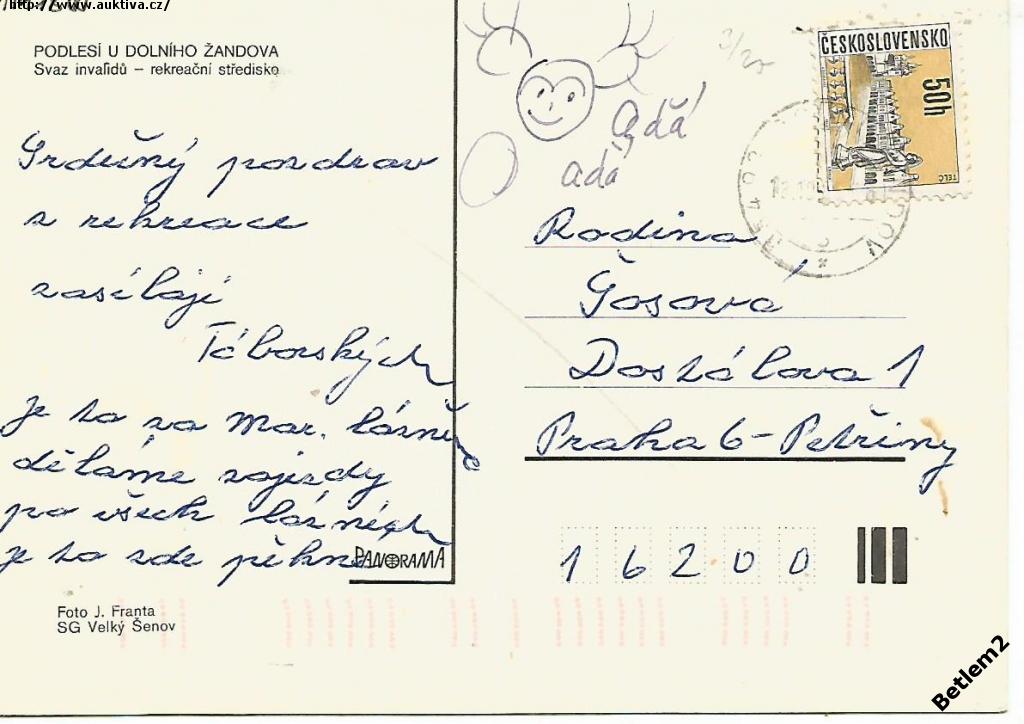 http://www.auktiva.cz/
PODLESÍ U DOLNÍHO ŽANDOVA
Svaz invalidů – rekreační středisko
Srdečný pozdrav
z rekreace
zasílají
Táborských
Je to za Mar. lázně
děláme zájezdy
po všech lázních
je to zde pěkné
PANORAMA
Foto J. Franta
SG Velký Šenov
aďá
adá
ČESKOSLOVENSKO
50h
TELČ
Rodina
Gosová
Dostálova 1
Praha 6 - Petřiny
16200
Betlem2